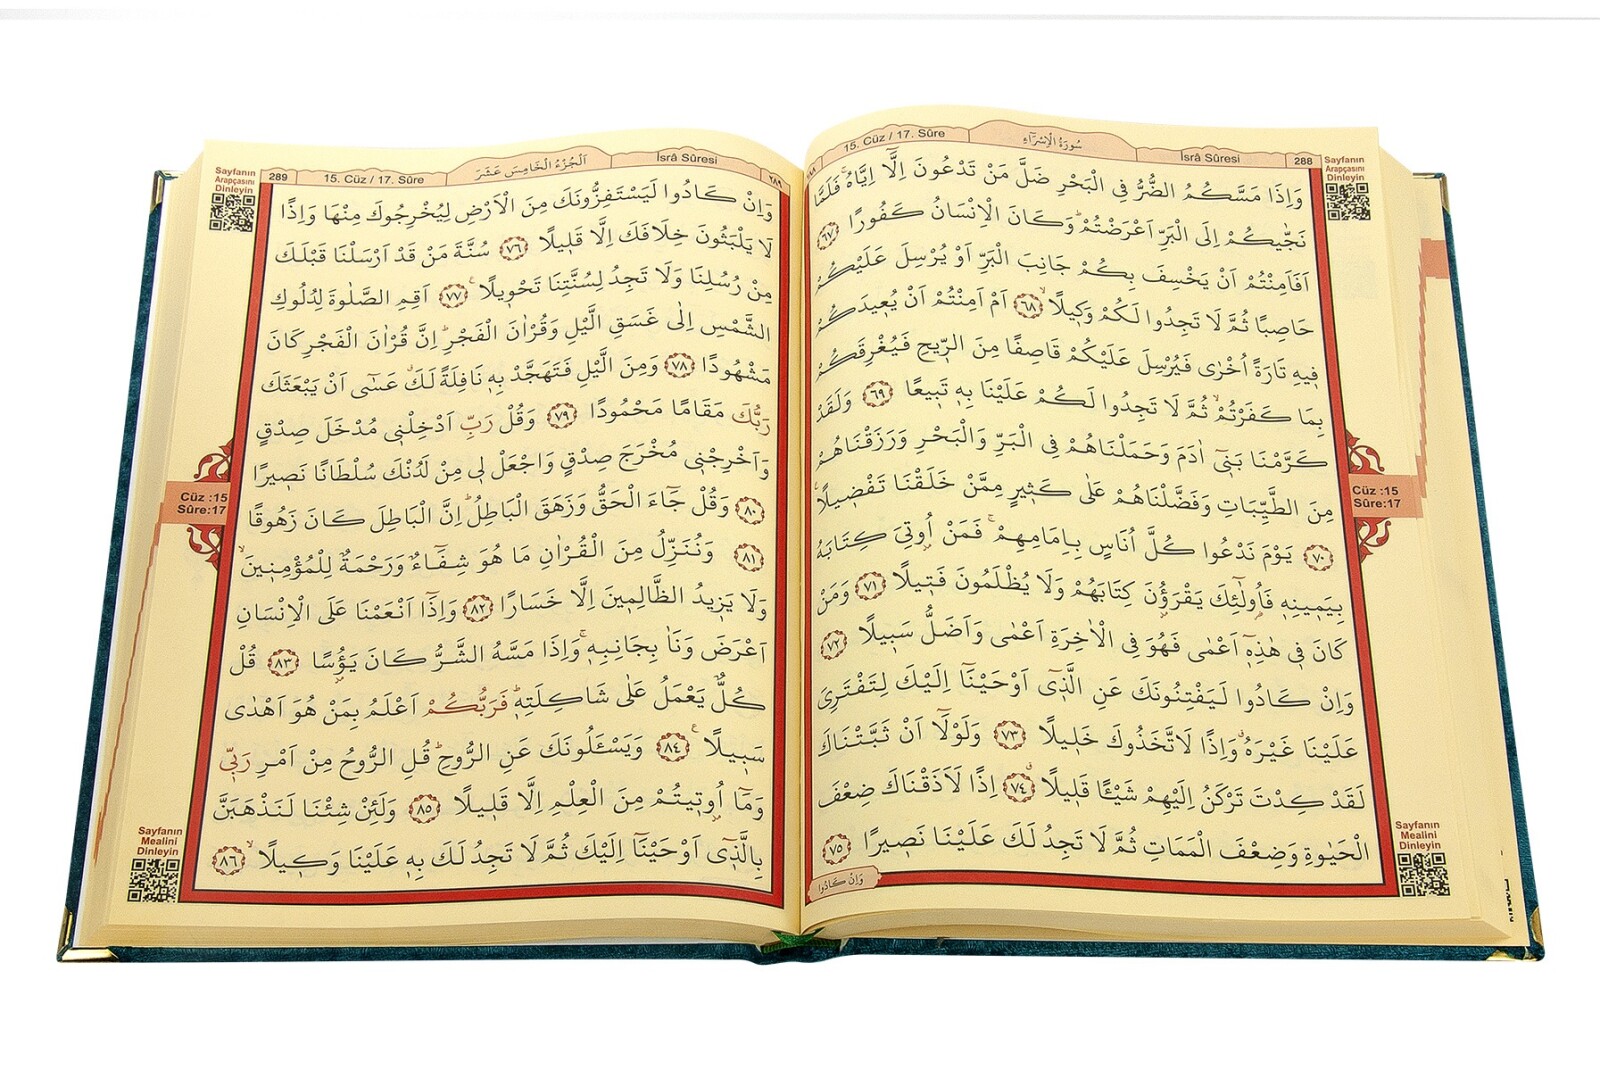 288
İsrâ Sûresi
سُورَةُ الْاِسْرَٓاءِ
15. Cüz / 17. Sûre
Sayfanın
Arapçasını
Dinleyin
وَاِذَا مَسَّكُمُ الضُّرُّ فِي الْبَحْرِ ضَلَّ مَنْ تَدْعُونَ اِلَّٓا اِيَّاهُۚ فَلَمَّا
نَجّٰيكُمْ اِلَى الْبَرِّ اَعْرَضْتُمْۜ وَكَانَ الْاِنْسَانُ كَفُورًا ﴿٦٧﴾
اَفَاَمِنْتُمْ اَنْ يَخْسِفَ بِكُمْ جَانِبَ الْبَرِّ اَوْ يُرْسِلَ عَلَيْكُمْ
حَاصِبًا ثُمَّ لَا تَجِدُوا لَكُمْ وَك۪يلًاۙ ﴿٦٨﴾ اَمْ اَمِنْتُمْ اَنْ يُع۪يدَكُمْ
ف۪يهِ تَارَةً اُخْرٰى فَيُرْسِلَ عَلَيْكُمْ قَاصِفًا مِنَ الرّ۪يحِ فَيُغْرِقَكُمْ
بِمَا كَفَرْتُمْۙ ثُمَّ لَا تَجِدُوا لَكُمْ عَلَيْنَا بِه۪ تَب۪يعًا ﴿٦٩﴾ وَلَقَدْ
كَرَّمْنَا بَن۪ٓي اٰدَمَ وَحَمَلْنَاهُمْ فِي الْبَرِّ وَالْبَحْرِ وَرَزَقْنَاهُمْ
مِنَ الطَّيِّبَاتِ وَفَضَّلْنَاهُمْ عَلٰى كَث۪يرٍ مِمَّنْ خَلَقْنَا تَفْض۪يلًا۟
﴿٧٠﴾ يَوْمَ نَدْعُوا كُلَّ اُنَاسٍ بِاِمَامِهِمْۚ فَمَنْ اُو۫تِيَ كِتَابَهُ
بِيَم۪ينِه۪ فَاُو۬لٰٓئِكَ يَقْرَؤُ۫نَ كِتَابَهُمْ وَلَا يُظْلَمُونَ فَت۪يلًا ﴿٧١﴾ وَمَنْ
كَانَ ف۪ي هٰذِه۪ٓ اَعْمٰى فَهُوَ فِي الْاٰخِرَةِ اَعْمٰى وَاَضَلُّ سَب۪يلًا ﴿٧٢﴾
وَاِنْ كَادُوا لَيَفْتِنُونَكَ عَنِ الَّذ۪ٓي اَوْحَيْنَٓا اِلَيْكَ لِتَفْتَرِيَ
عَلَيْنَا غَيْرَهُۗ وَاِذًا لَاتَّخَذُوكَ خَل۪يلًا ﴿٧٣﴾ وَلَوْلَٓا اَنْ ثَبَّتْنَاكَ
لَقَدْ كِدْتَ تَرْكَنُ اِلَيْهِمْ شَيْـًٔا قَل۪يلًاۗ ﴿٧٤﴾ اِذًا لَاَذَقْنَاكَ ضِعْفَ
الْحَيٰوةِ وَضِعْفَ الْمَمَاتِ ثُمَّ لَا تَجِدُ لَكَ عَلَيْنَا نَص۪يرًا ﴿٧٥﴾
وَاِنْ كَادُوا
Cüz :15
Sûre:17
Sayfanın
Mealini
Dinleyin
٢٨٩
İsrâ Sûresi
اَلْجُزْءُ الْخَامِسَ عَشَرَ
15. Cüz / 17. Sûre
289
Sayfanın
Arapçasını
Dinleyin
وَاِنْ كَادُوا لَيَسْتَفِزُّونَكَ مِنَ الْاَرْضِ لِيُخْرِجُوكَ مِنْهَا وَاِذًا
لَا يَلْبَثُونَ خِلَافَكَ اِلَّا قَل۪يلًا ﴿٧٦﴾ سُنَّةَ مَنْ قَدْ اَرْسَلْنَا قَبْلَكَ
مِنْ رُسُلِنَا وَلَا تَجِدُ لِسُنَّتِنَا تَحْو۪يلًا۟ ﴿٧٧﴾ اَقِمِ الصَّلٰوةَ لِدُلُوكِ
الشَّمْسِ اِلٰى غَسَقِ الَّيْلِ وَقُرْاٰنَ الْفَجْرِۜ اِنَّ قُرْاٰنَ الْفَجْرِ كَانَ
مَشْهُودًا ﴿٧٨﴾ وَمِنَ الَّيْلِ فَتَهَجَّدْ بِه۪ نَافِلَةً لَكَۗ عَسٰٓى اَنْ يَبْعَثَكَ
رَبُّكَ مَقَامًا مَحْمُودًا ﴿٧٩﴾ وَقُلْ رَبِّ اَدْخِلْن۪ي مُدْخَلَ صِدْقٍ
وَاَخْرِجْن۪ي مُخْرَجَ صِدْقٍ وَاجْعَلْ ل۪ي مِنْ لَدُنْكَ سُلْطَانًا نَص۪يرًا
﴿٨٠﴾ وَقُلْ جَٓاءَ الْحَقُّ وَزَهَقَ الْبَاطِلُۜ اِنَّ الْبَاطِلَ كَانَ زَهُوقًا
﴿٨١﴾ وَنُنَزِّلُ مِنَ الْقُرْاٰنِ مَا هُوَ شِفَٓاءٌ وَرَحْمَةٌ لِلْمُؤْمِن۪ينَۙ
وَلَا يَز۪يدُ الظَّالِم۪ينَ اِلَّا خَسَارًا ﴿٨٢﴾ وَاِذَٓا اَنْعَمْنَا عَلَى الْاِنْسَانِ
اَعْرَضَ وَنَاٰ بِجَانِبِه۪ۚ وَاِذَا مَسَّهُ الشَّرُّ كَانَ يَؤُ۫سًا ﴿٨٣﴾ قُلْ
كُلٌّ يَعْمَلُ عَلٰى شَاكِلَتِه۪ۜ فَرَبُّكُمْ اَعْلَمُ بِمَنْ هُوَ اَهْدٰى
سَب۪يلًا۟ ﴿٨٤﴾ وَيَسْـَٔلُونَكَ عَنِ الرُّوحِۜ قُلِ الرُّوحُ مِنْ اَمْرِ رَبّ۪ي
وَمَٓا اُو۫ت۪يتُمْ مِنَ الْعِلْمِ اِلَّا قَل۪يلًا ﴿٨٥﴾ وَلَئِنْ شِئْنَا لَنَذْهَبَنَّ
بِالَّذ۪ٓي اَوْحَيْنَٓا اِلَيْكَ ثُمَّ لَا تَجِدُ لَكَ بِه۪ عَلَيْنَا وَك۪يلًاۙ ﴿٨٦﴾
Cüz :15
Sûre:17
Sayfanın
Mealini
Dinleyin